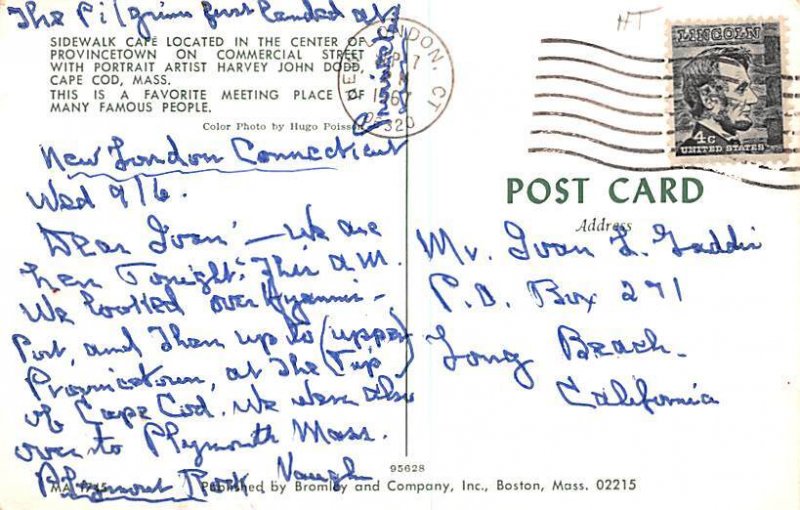 The Pilgrims first landed at
Provincetown
SIDEWALK CAFÉ LOCATED IN THE CENTER OF
PROVINCETOWN ON COMMERCIAL STREET
WITH PORTRAIT ARTIST HARVEY JOHN DODD,
CAPE COD, MASS.
THIS IS A FAVORITE MEETING PLACE OF
MANY FAMOUS PEOPLE.
Color Photo by Hugo Poisson
New London Connecticut
Wed 9/6.
Dear Ivan: — We are
here Tonight. This A.M.
We looked over Hyannis-
Port, and Then up to (upper)
Provincetown, at The (Tip
of Cape Cod. We were also
over to Plymouth Mass.
Plymouth Rock Vaughn
MA 1745 Published by Bromley and Company, Inc., Boston, Mass. 02215
95628
NEW LONDON, CT
SEP 7
1967
06320
LINCOLN
4c
UNITED STATES
POST CARD
Address
Mr. Ivan L. Gaddis
P.O. Box 271
Long Beach-
California